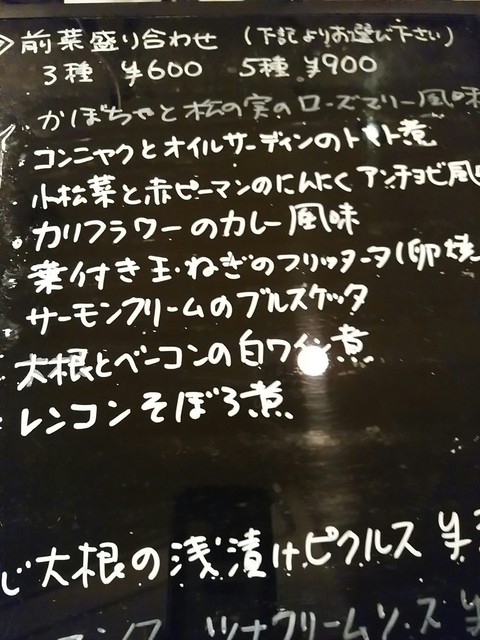 前菜盛り合わせ (下記よりお選び下さい)
3種 ¥600 5種 ¥900
かぼちゃと松の実のローズマリー風味
コンニャクとオイルサーディンのトマト煮
小松菜と赤ピーマンのにんにくアンチョビ風味
カリフラワーのカレー風味
葉付き玉ねぎのフリッタータ(卵焼
サーモンクリームのブルスケッタ
大根とベーコンの白ワイン煮
レンコンそぼろ煮
じ大根の浅漬けピクルス ¥
ツナクリームソース ¥